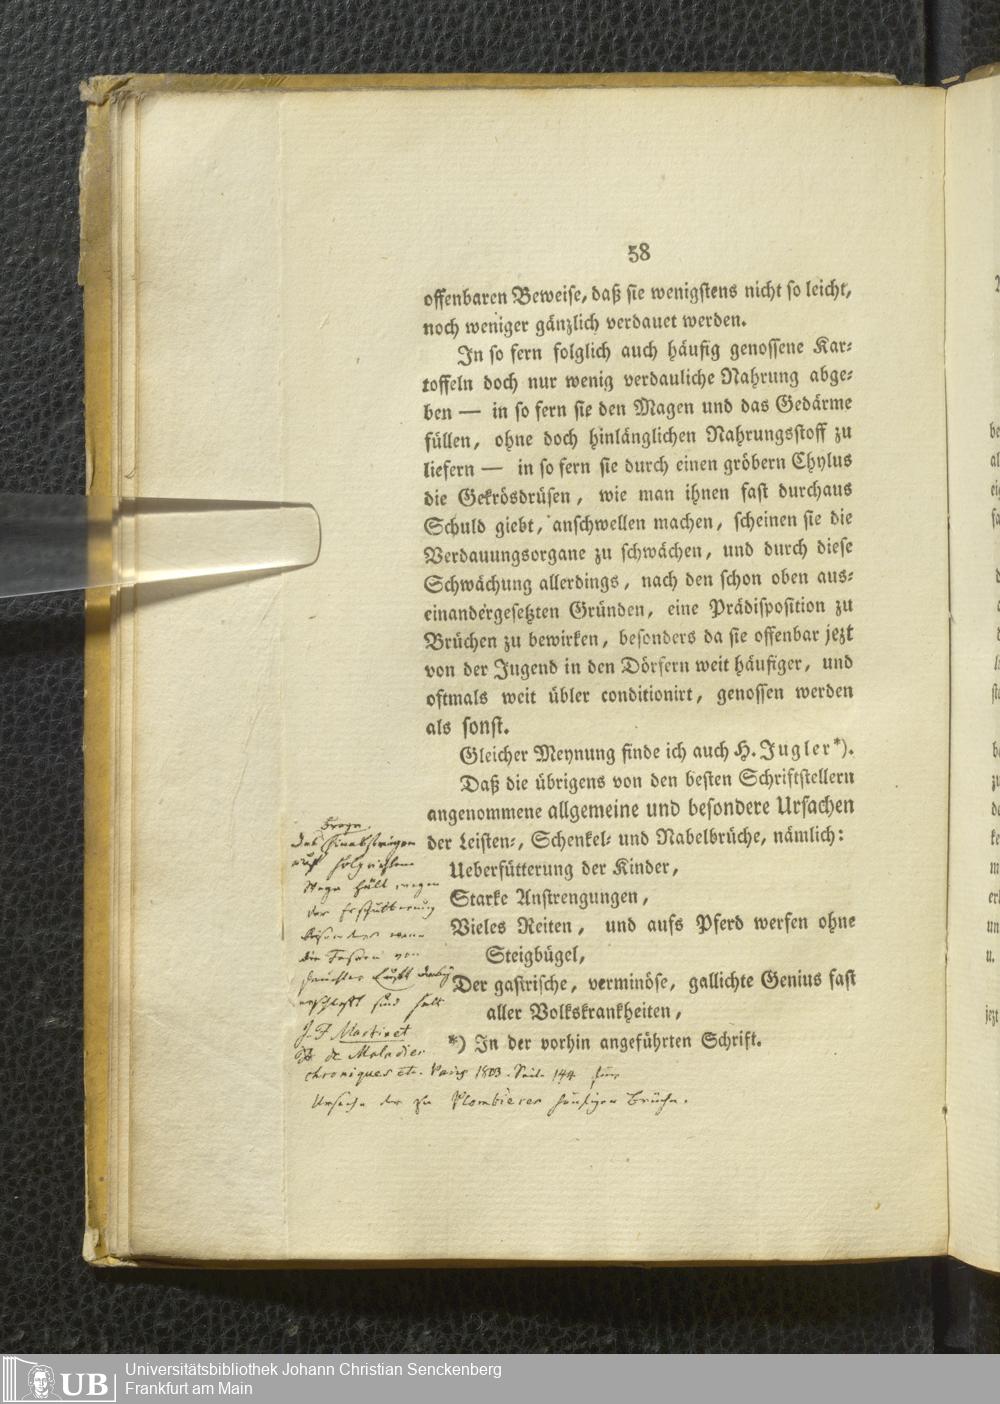 58
offenbaren Beweise, daß sie wenigstens nicht so leicht,
noch weniger gänzlich verdauet werden.
In so fern folglich auch häufig genossene Kar-
toffeln doch nur wenig verdauliche Nahrung abge-
ben — in so fern sie den Magen und das Gedärme
füllen, ohne doch hinlänglichen Nahrungsstoff zu
liefern — in so fern sie durch einen gröbern Chylus
die Gekrösdrüsen, wie man ihnen fast durchaus
Schuld giebt, anschwellen machen, scheinen sie die
Verdauungsorgane zu schwächen, und durch diese
Schwächung allerdings, nach den schon oben aus-
einandergesetzten Gründen, eine Prädisposition zu
Brüchen zu bewirken, besonders da sie offenbar jezt
von der Jugend in den Dörfern weit häufiger, und
oftmals weit übler conditionirt, genossen werden
als sonst.
Gleicher Meynung finde ich auch H. Jugler*).
Daß die übrigens von den besten Schriftstellern
angenommene allgemeine und besondere Ursachen
der Leisten-, Schenkel- und Nabelbrüche, nämlich:
Ueberfütterung der Kinder,
Starke Anstrengungen,
Vieles Reiten, und aufs Pferd werfen ohne
Steigbügel,
Der gastrische, verminöse, gallichte Genius fast
aller Volkskrankheiten,
*) In der vorhin angeführten Schrift.
Das
auf
Wege hält wegen
der Erschütterung
besonders wenn
die Fasern von
feuchter Luft
erschlafft sind
J. F Martinet
de Maladies
chroniques etc. Paris 1803. Seite 144
Ursache der zu Plombieres häufigen Brüche.
Universitätsbibliothek Johann Christian Senckenberg
Frankfurt am Main
UB